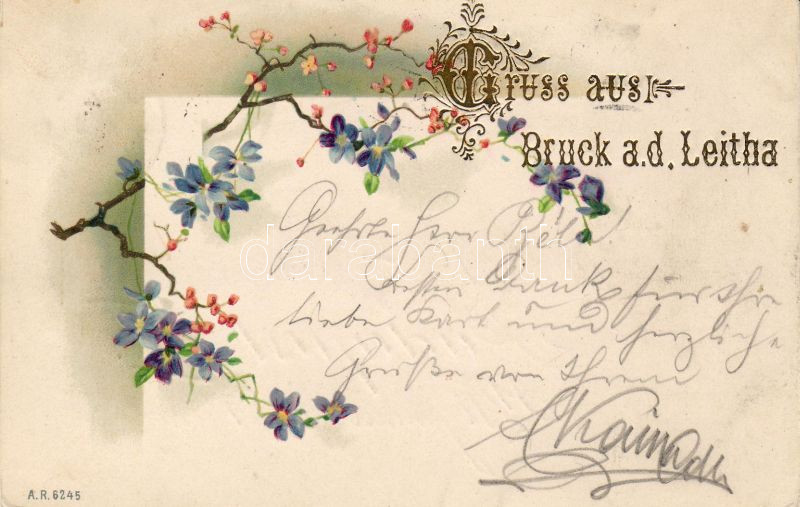 Gruss aus
Bruck a.d. Leitha
Geehrter Herr
Besten Dank für Ihre
liebe Kart und herzliche
Grüße von Ihrem
darabanth
A.R. 6245